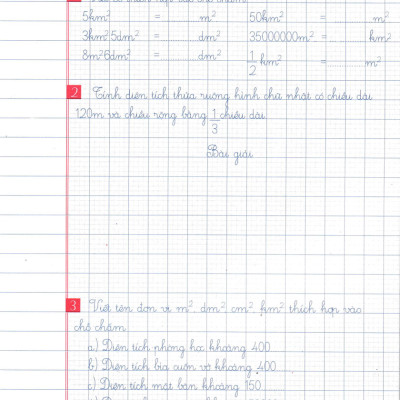 5km² = m² 50km² = m²
3km² 5dm² = dm² 35000000m² = km²
8m² 6dm² = dm² 1/2 km² = m²
2 Tính diện tích thửa ruộng hình chữ nhật có chiều dài
120m và chiều rộng bằng 1/3 chiều dài
Bài giải
3 Viết tên đơn vị m², dm², cm², km² thích hợp vào
chỗ chấm
a) Diện tích phòng học khoảng 400
b) Diện tích bìa cuốn vở khoảng 400
c) Diện tích mặt bàn khoảng 150